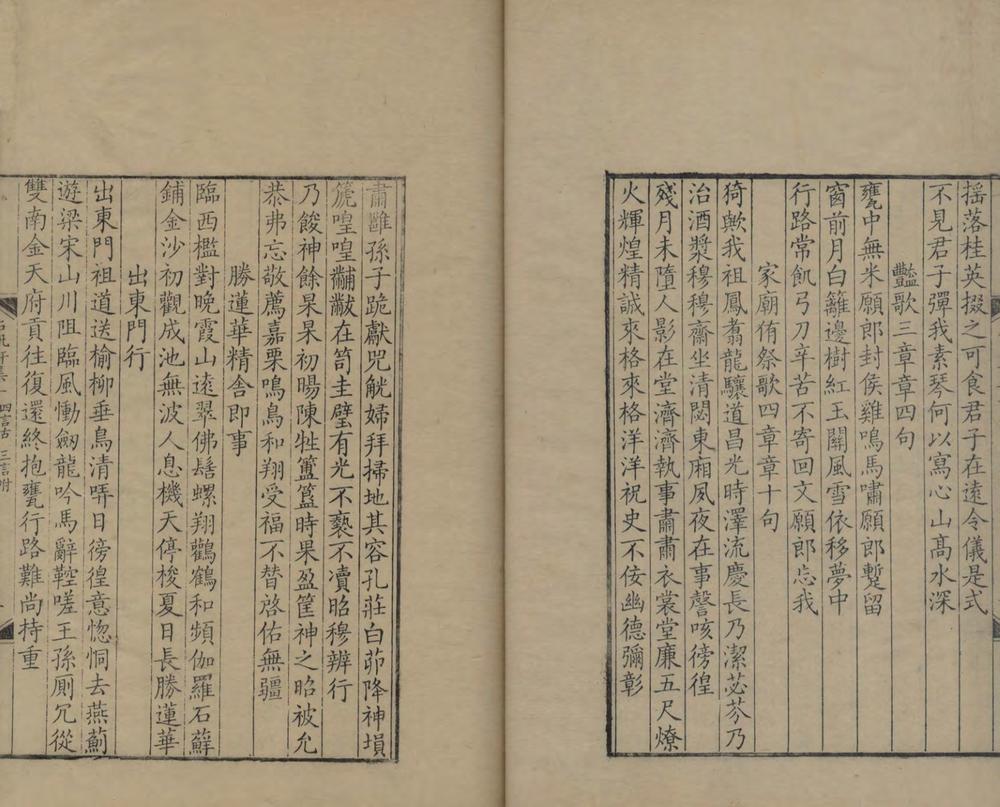 搖落桂英掇之可食君子在遠令儀是式
不見君子彈我素琴何以寫心山高水深
豔歌三章章四句
甕中無米願郎封侯雞鳴馬嘯願郎蹔留
窗前月白籬邊樹紅玉關風雪依移夢中
行路常飢弓刀辛苦不寄回文願郎忘我
家廟侑祭歌四章章十句
猗歟我祖鳳翥龍驤道昌光時澤流慶長乃潔苾芬乃
治酒漿穆穆齋坐清閟東廂夙夜在事謦咳徬徨
殘月未墮人影在堂濟濟執事肅肅衣裳堂廉五尺燎
火輝煌精誠來格來格洋洋祝史不侫幽德彌彰
肅雝孫子跪獻兕觥婦拜掃地其容孔莊白茆降神塤
篪喤喤黼黻在笥圭璧有光不褻不瀆昭穆辨行
乃餕神餘杲杲初暘陳牲簠簋時果盈筐神之昭被允
恭弗忘敬薦嘉栗鳴鳥和翔受福不替啓佑無疆
勝蓮華精舍即事
臨西檻對晚霞山遠翠佛髻螺翔鸛鶴和頻伽羅石蘚
鋪金沙初觀成池無波人息機天停梭夏日長勝蓮華
出東門行
出東門祖道送榆柳垂鳥清哢日徬徨意惚恫去燕薊
遊梁宋山川阻臨風慟劒龍吟馬辭鞚嗟王孫厠冗從
雙南金天府貢往復還終抱甕行路難尚持重
四言古 三言附